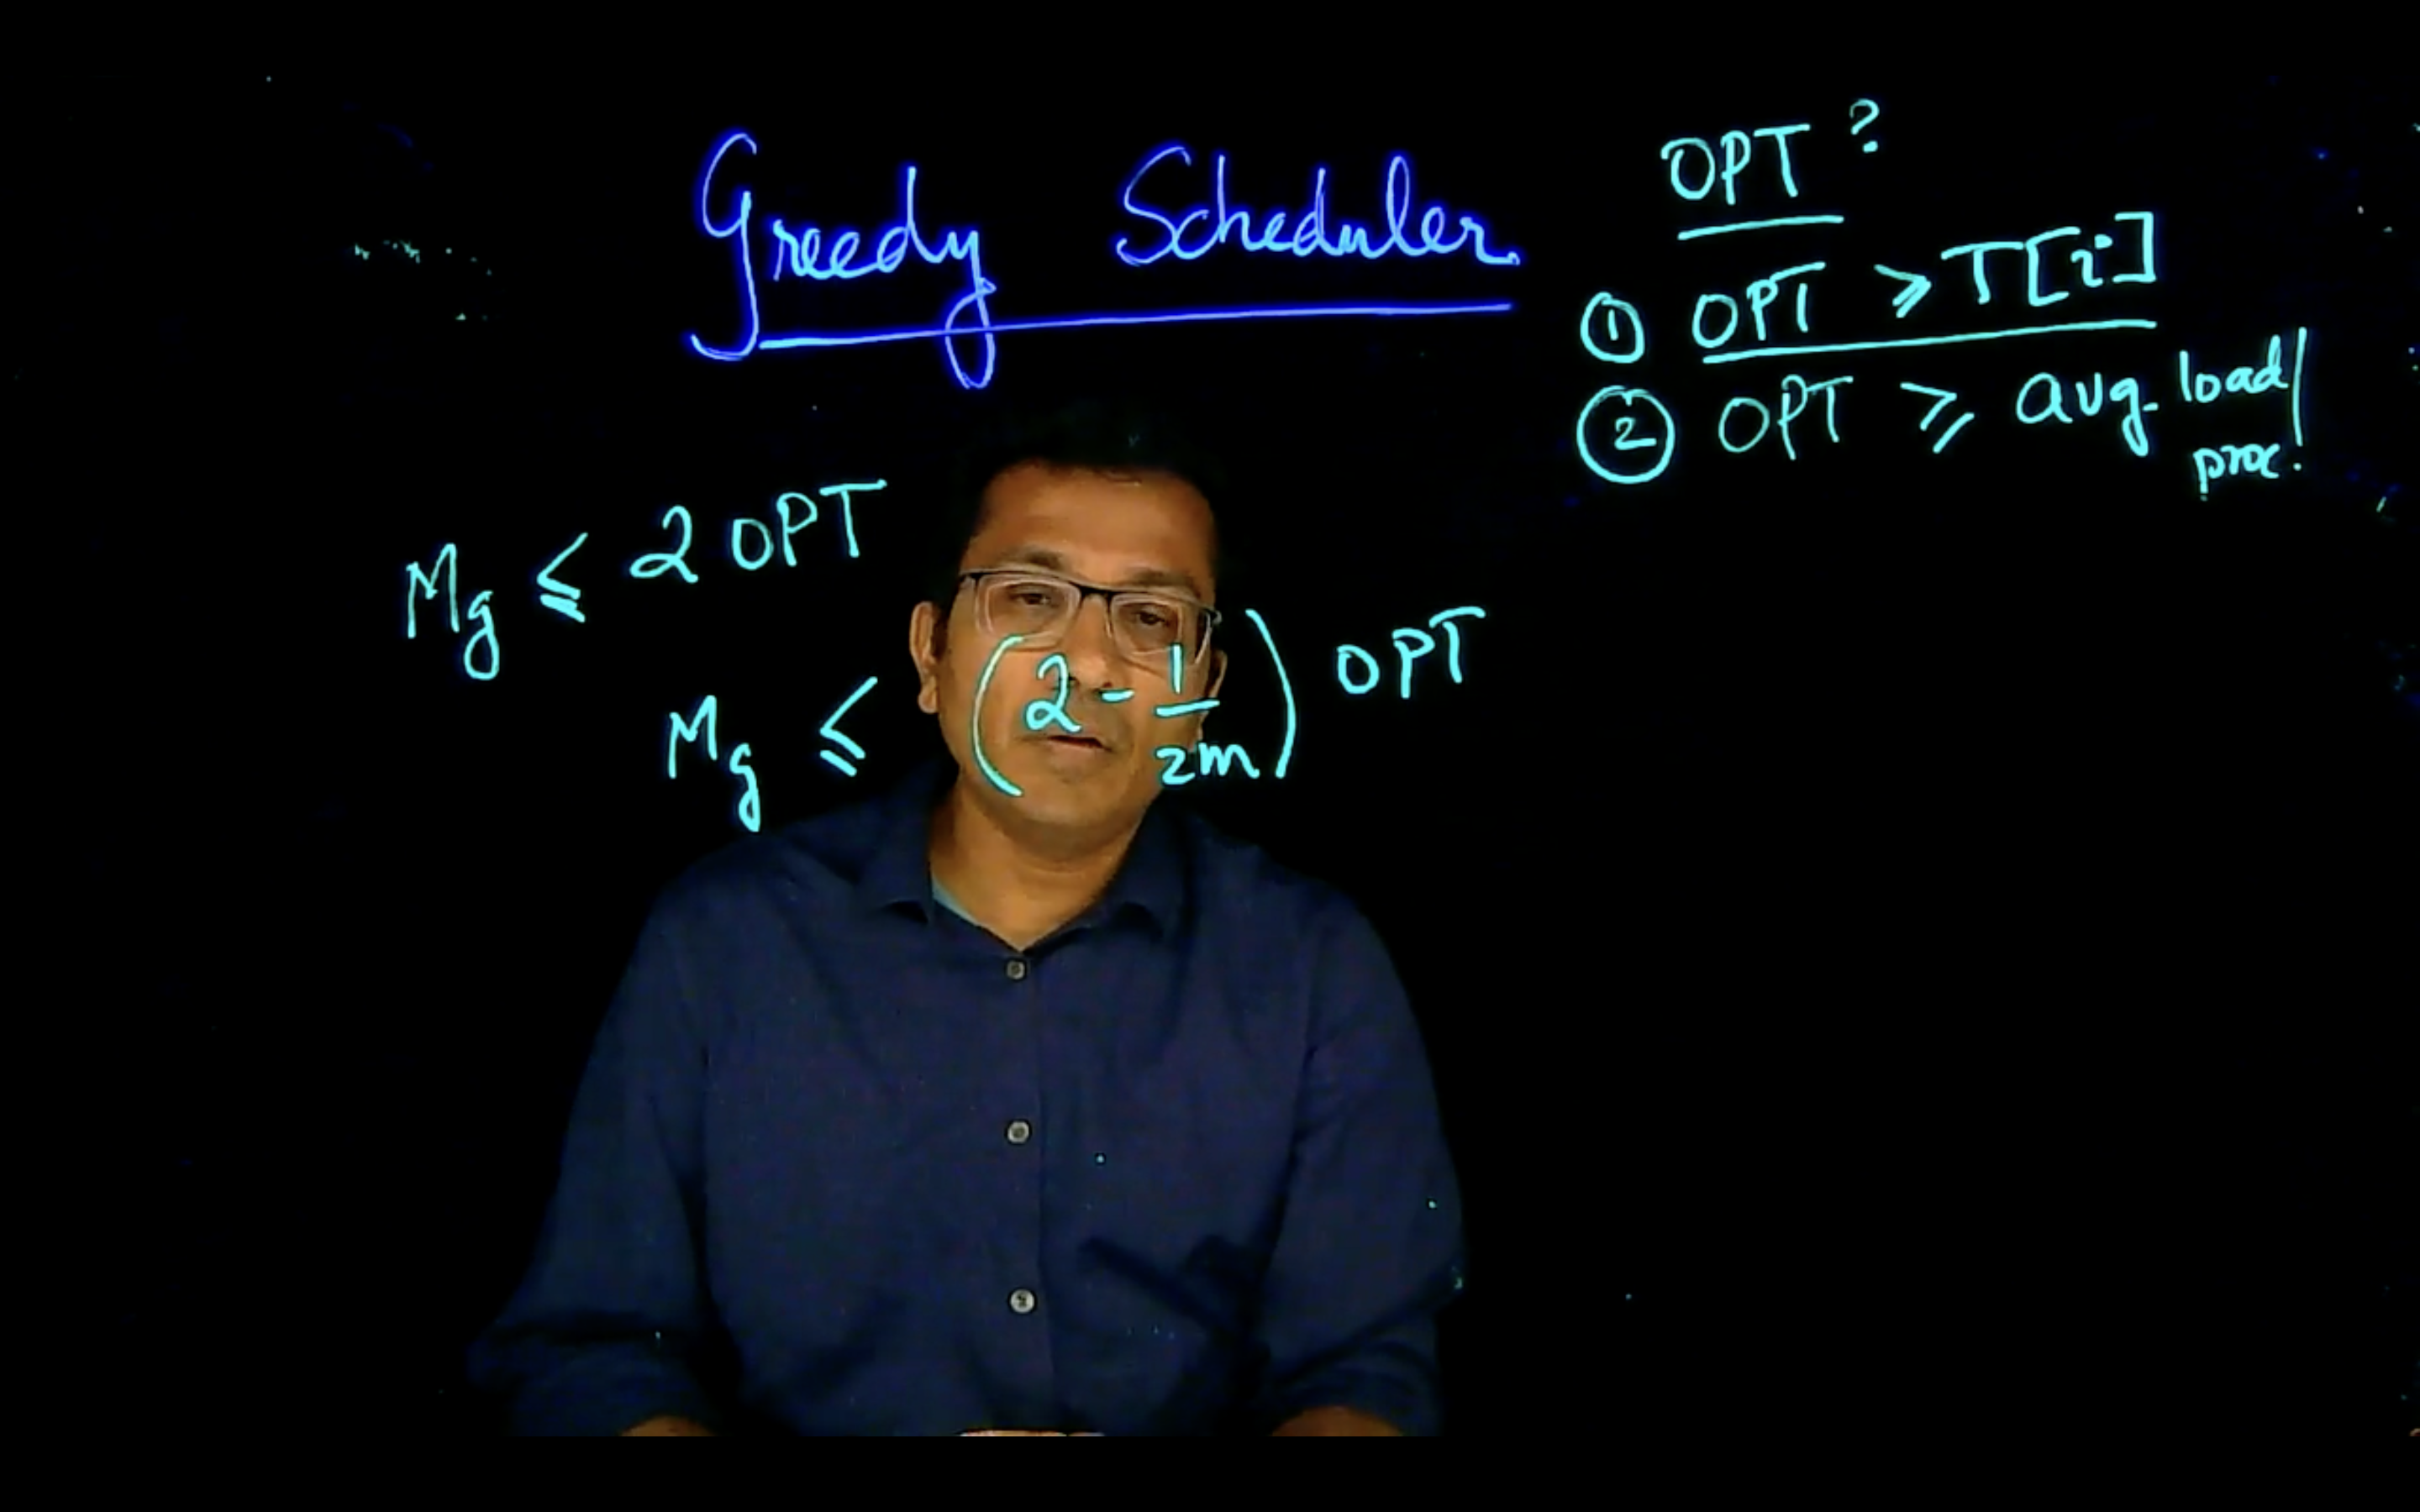 Greedy Scheduler
OPT ?
① OPT ≥ T[i]
② OPT ≥ avg. load/
proc.
Mg ≤ 2 OPT
Mg ≤ (2 - 1/2m) OPT